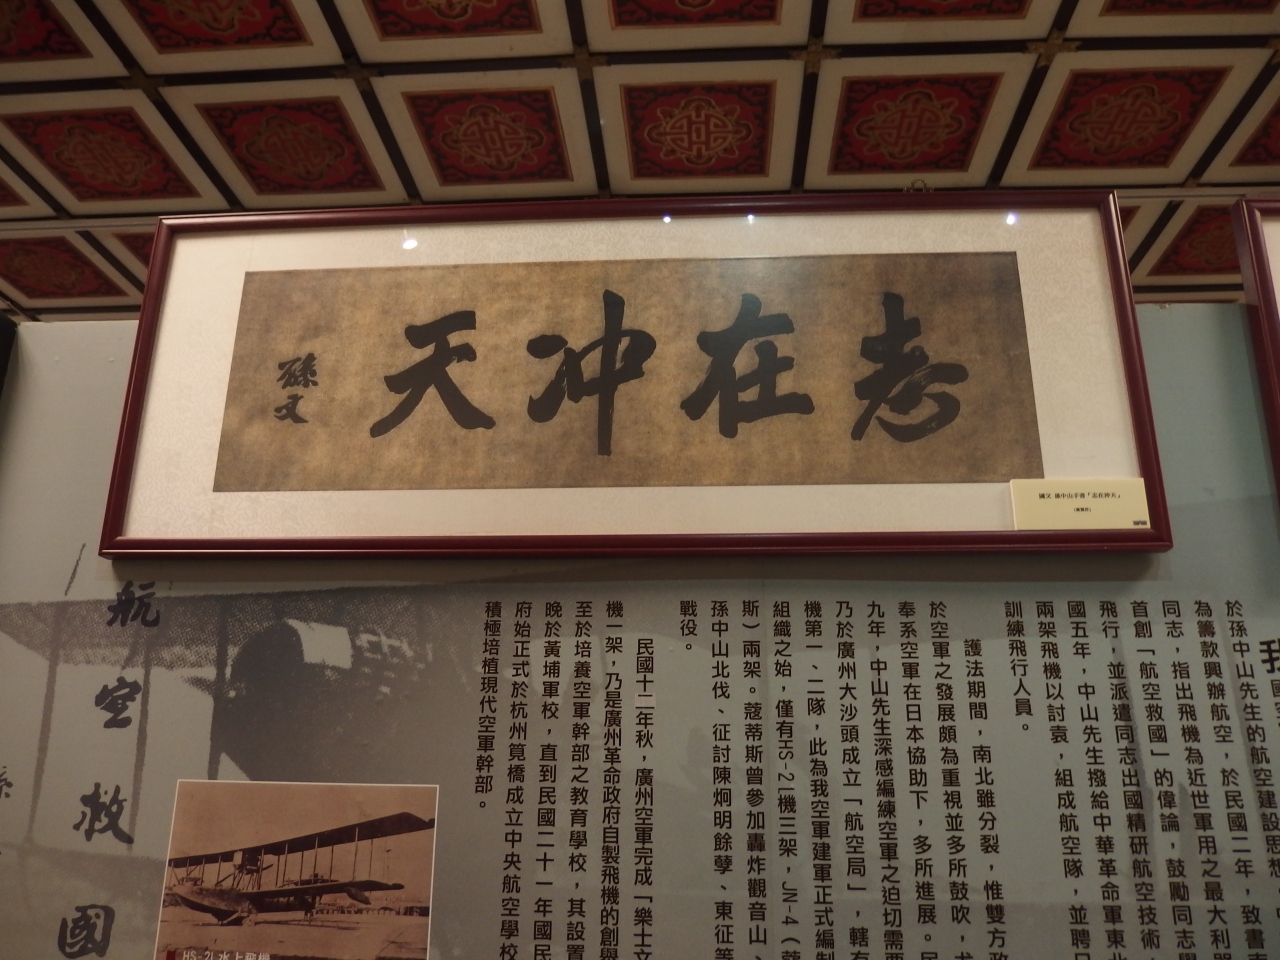 志在冲天
孫文
國父 孫中山手書「志在冲天」
航空救國
於孫中山先生的航空建設思想
為籌款興辦航空，於民國二年，致書南
同志，指出飛機為近世軍用之最大利器
首創「航空救國」的偉論，鼓勵同志學
飛行，並派遣同志出國精研航空技術，
國五年，中山先生撥給中華革命軍東北
兩架飛機以討袁，組成航空隊，並聘日
訓練飛行人員。
護法期間，南北雖分裂，惟雙方政
於空軍之發展頗為重視並多所鼓吹，尤
奉系空軍在日本協助下，多所進展。民
九年，中山先生深感編練空軍之迫切需要
乃於廣州大沙頭成立「航空局」，轄有
機第一、二隊，此為我空軍建軍正式編制
組織之始，僅有HS-2L機三架，JN-4（蔻
斯）兩架。蔻蒂斯曾參加轟炸觀音山、
孫中山北伐、征討陳炯明餘孽、東征等
戰役。
民國十二年秋，廣州空軍完成「樂士文
機一架，乃是廣州革命政府自製飛機的創舉
至於培養空軍幹部之教育學校，其設置
晚於黃埔軍校，直到民國二十一年國民
府始正式於杭州筧橋成立中央航空學校
積極培植現代空軍幹部。
HS-2L水上飛機